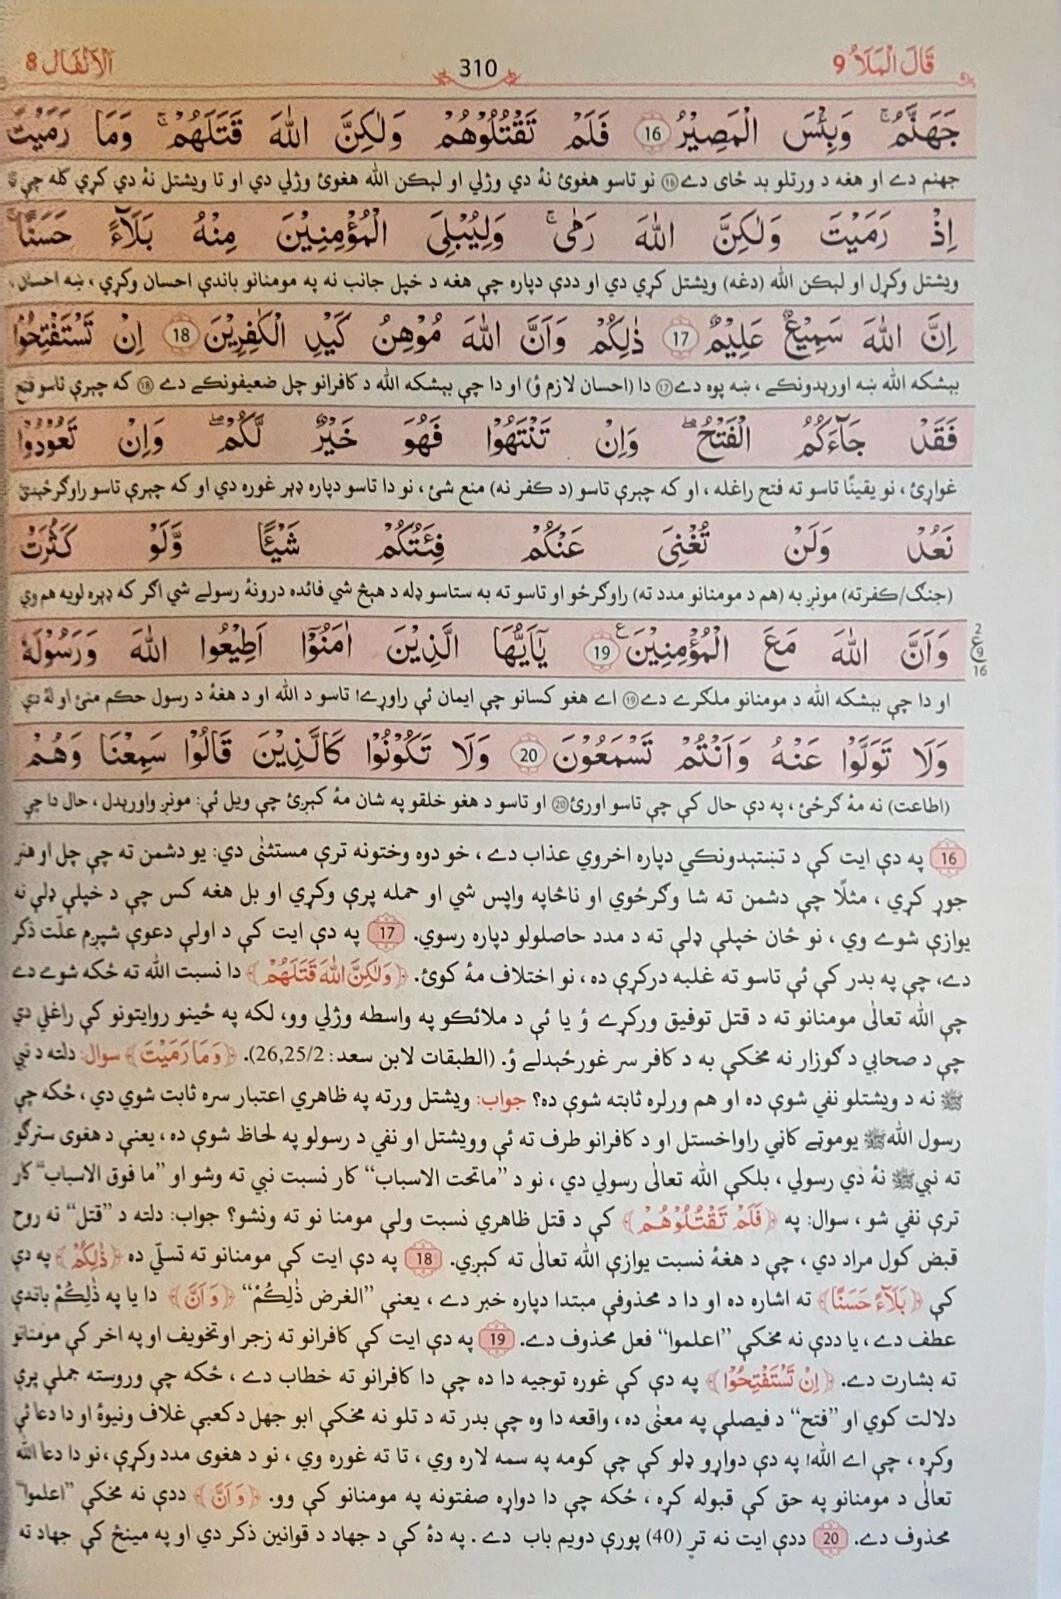 قَالَ الْمَلَاُ 9
310
اَلْاَنْفَال 8
جَهَنَّمُ ۚ وَبِئْسَ الْمَصِيْرُ 16 فَلَمْ تَقْتُلُوْهُمْ وَلٰكِنَّ اللّٰهَ قَتَلَهُمْ ۚ وَمَا رَمَيْتَ
جهنم دے او هغه د ورتلو بد ځای دے⑯ نو تاسو هغوئ نۀ دي وژلي او لېکن الله هغوئ وژلي دي او تا ویشتل نۀ دي کړي کله چې
اِذْ رَمَيْتَ وَلٰكِنَّ اللّٰهَ رَمٰى ۚ وَلِيُبْلِىَ الْمُؤْمِنِيْنَ مِنْهُ بَلَآءً حَسَنًا ۚ
ویشتل وکړل او لېکن الله (دغه) ویشتل کړي دي او ددې دپاره چې هغه د خپل جانب نه په مومنانو باندې احسان وکړي ، ښه احسان ،
اِنَّ اللّٰهَ سَمِيْعٌ عَلِيْمٌ 17 ذٰلِكُمْ وَاَنَّ اللّٰهَ مُوْهِنُ كَيْدِ الْكٰفِرِيْنَ 18 اِنْ تَسْتَفْتِحُوْا
بېشکه الله ښه اورېدونکے ، ښه پوه دے⑰ دا (احسان لازم ؤ) او دا چې بېشکه الله د کافرانو چل ضعیفونکے دے ⑱ که چېرې تاسو فتح
فَقَدْ جَآءَكُمُ الْفَتْحُ ۖ وَاِنْ تَنْتَهُوْا فَهُوَ خَيْرٌ لَّكُمْ ۖ وَاِنْ تَعُوْدُوْا
غواړئ ، نو یقینًا تاسو ته فتح راغله ، او که چېرې تاسو (د کفر نه) منع شئ ، نو دا تاسو دپاره ډېر غوره دي او که چېرې تاسو راوګرځېدئ
نَعُدْ وَلَنْ تُغْنِىَ عَنْكُمْ فِئَتُكُمْ شَيْـًٔا وَّلَوْ كَثُرَتْ
(جنګ/کفرته) مونږ به (هم د مومنانو مدد ته) راوګرځو او تاسو ته به ستاسو ډله د هېڅ شي فائده درونۀ رسولے شي اګر که ډېره لویه هم وي
وَاَنَّ اللّٰهَ مَعَ الْمُؤْمِنِيْنَ 19 يٰٓاَيُّهَا الَّذِيْنَ اٰمَنُوْٓا اَطِيْعُوا اللّٰهَ وَرَسُوْلَهٗ
2 ع 9 16
او دا چې بېشکه الله د مومنانو ملګرے دے⑲ اے هغو کسانو چې ایمان ئې راوړے! تاسو د الله او د هغۀ د رسول حکم منئ او لۀ دې
وَلَا تَوَلَّوْا عَنْهُ وَاَنْتُمْ تَسْمَعُوْنَ 20 وَلَا تَكُوْنُوْا كَالَّذِيْنَ قَالُوْا سَمِعْنَا وَهُمْ
(اطاعت) نه مۀ ګرځئ ، په دې حال کې چې تاسو اورئ⑳ او تاسو د هغو خلقو په شان مۀ کېږئ چې ویل ئې: مونږ واورېدل ، حال دا چې
16 په دې ایت کې د تښتېدونکي دپاره اخروي عذاب دے ، خو دوه وختونه ترې مستثنٰی دي: یو دشمن ته چې چل او هنر
جوړ کړي ، مثلًا چې دشمن ته شا وګرځوي او ناڅاپه واپس شي او حمله پرې وکړي او بل هغه کس چې د خپلې ډلې نه
یوازې شوے وي ، نو ځان خپلې ډلې ته د مدد حاصلولو دپاره رسوي. 17 په دې ایت کې د اولې دعوې شپږم علّت ذکر
دے، چې په بدر کې ئې تاسو ته غلبه درکړې ده ، نو اختلاف مۀ کوئ. ﴿وَلٰكِنَّ اللّٰهَ قَتَلَهُمْ﴾ دا نسبت الله ته ځکه شوے دے
چې الله تعالٰی مومنانو ته د قتل توفیق ورکړے ؤ یا ئې د ملائکو په واسطه وژلي وو، لکه په ځینو روایتونو کې راغلي دي
چې د صحابي د ګوزار نه مخکې به د کافر سر غورځېدلے ؤ. (الطبقات لابن سعد: 26,25/2). ﴿وَمَا رَمَيْتَ﴾ سوال: دلته د نبي
ﷺ نه د ویشتلو نفي شوې ده او هم ورلره ثابته شوې ده؟ جواب: ویشتل ورته په ظاهري اعتبار سره ثابت شوي دي ، ځکه چې
رسول اللهﷺ یوموټے کاڼي راواخستل او د کافرانو طرف ته ئې وویشتل او نفي د رسولو په لحاظ شوې ده ، یعنې د هغوی سترګو
ته نبيﷺ نۀ دي رسولي ، بلکې الله تعالٰی رسولي دي ، نو د “ماتحت الاسباب” کار نسبت نبي ته وشو او “ما فوق الاسباب” کار
ترې نفي شو ، سوال: په ﴿فَلَمْ تَقْتُلُوْهُمْ﴾ کې د قتل ظاهري نسبت ولې مومنا نو ته ونشو؟ جواب: دلته د “قتل” نه روح
قبض کول مراد دي ، چې د هغۀ نسبت یوازې الله تعالٰی ته کېږي. 18 په دې ایت کې مومنانو ته تسلّي ده ﴿ذٰلِكُمْ﴾ په دې
کې ﴿بَلَآءً حَسَنًا﴾ ته اشاره ده او دا د محذوفې مبتدا دپاره خبر دے ، یعنې “الغرض ذٰلِكُمْ” ﴿وَاَنَّ﴾ دا یا په ذٰلِكُمْ باندې
عطف دے ، یا ددې نه مخکې “اعلموا” فعل محذوف دے. 19 په دې ایت کې کافرانو ته زجر اوتخویف او په اخر کې مومنانو
ته بشارت دے. ﴿اِنْ تَسْتَفْتِحُوْا﴾ په دې کې غوره توجیه دا ده چې دا کافرانو ته خطاب دے ، ځکه چې وروسته جملې پرې
دلالت کوي او “فتح” د فیصلې په معنٰی ده ، واقعه دا وه چې بدر ته د تلو نه مخکې ابو جهل د کعبې غلاف ونیوۀ او دا دعا ئې
وکړه ، چې اے الله! په دې دواړو ډلو کې چې کومه په سمه لاره وي ، تا ته غوره وي ، نو د هغوی مدد وکړې ، نو دا دعا الله
تعالٰی د مومنانو په حق کې قبوله کړه ، ځکه چې دا دواړه صفتونه په مومنانو کې وو. ﴿وَاَنَّ﴾ ددې نه مخکې “اعلموا”
محذوف دے. 20 ددې ایت نه تر (40) پورې دویم باب دے . په دۀ کې د جهاد د قوانین ذکر دي او په مینځ کې جهاد ته